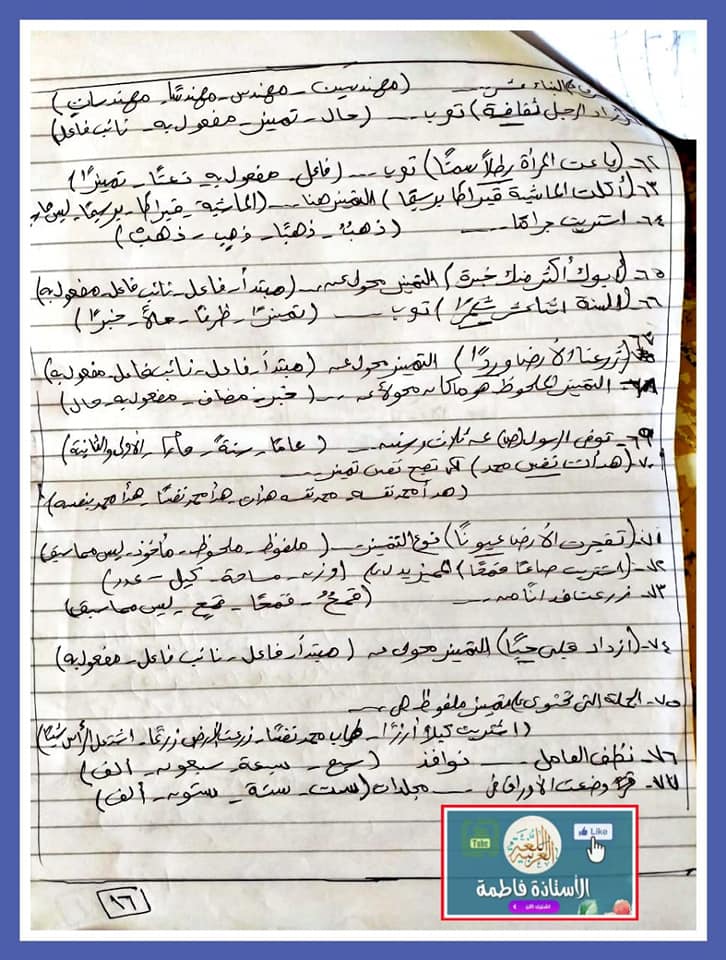 البناء عشر ... (مهندسين - مهندس - مهندسًا - مهندسات)
زاد الرجل ثقافية) توب ... (حال - تمييز - مفعول به - نائب فاعل)
٦٢- (باعت المرأة رطلاً سمنًا) توب ... (فاعل - مفعول به - نعتًا - تمييزًا)
٦٣- (أكلت الماشية قيراطًا برسيمًا) التمييز هنا ... (الماشية - قيراطًا - برسيمًا - ليس مما
٦٤- اشتريت جرامًا ... (ذهبٌ - ذهبًا - وذهب - ذهبٍ)
٦٥- (أبوك أكثر منك خبرة) التمييز محول عن ... (مبتدأ - فاعل - نائب فاعل - مفعول به)
٦٦- (السنة اثنا عشر شهرًا) توب ... (تمييزًا - ظرفًا - حالاً - خبرًا)
٦٧- (زرعنا الأرض وردًا) التمييز محول عن (مبتدأ - فاعل - نائب فاعل - مفعول به)
٦٨- التمييز الملحوظ هو ما كان محولاً عن ... (خبر - مضاف - مفعول به - حال)
٦٩- توفى الرسول (ص) عن ثلاث وستين ... (عامًا - سنةً - عام - الأولى والثانية)
٧٠- (هدأت نفس محمد) لكى تصبح نفس تمييز ...
(هدأ محمد نفسه - محمد نفسه هدأت - هدأ محمد نفسًا - هدأ محمد بنفسه)
٧١- (تفجرت الأرض عيونًا) نوع التمييز ... (ملفوظ - ملحوظ - مأخوذ - ليس مما سبق)
٧٢- (اشتريت صاعًا قمحًا) المميز يدل على (وزن - مساحة - كيل - عدد)
٧٣- زرعت فدانًا من ... (قمحٌ - قمحًا - قمحٍ - ليس مما سبق)
٧٤- (ازداد على حبًا) التمييز محول عن (مبتدأ - فاعل - نائب فاعل - مفعول به)
٧٥- الجملة التى تحتوى على تمييز ملفوظ هى ...
(اشتريت كيلاً أرزًا - طاب محمد نفسًا - زرعت الأرض زرعًا - اشتعل الرأس شيبًا)
٧٦- نظف العامل ... نوافذ (سبع - سبعة - سبعون - ألف)
٧٧- وضعت الأوراق فى ... مجلدات (ست - ستة - ستون - ألف)
Tube
اللغة العربية
Like
الأستاذة فاطمة
اشترك الآن
١٦